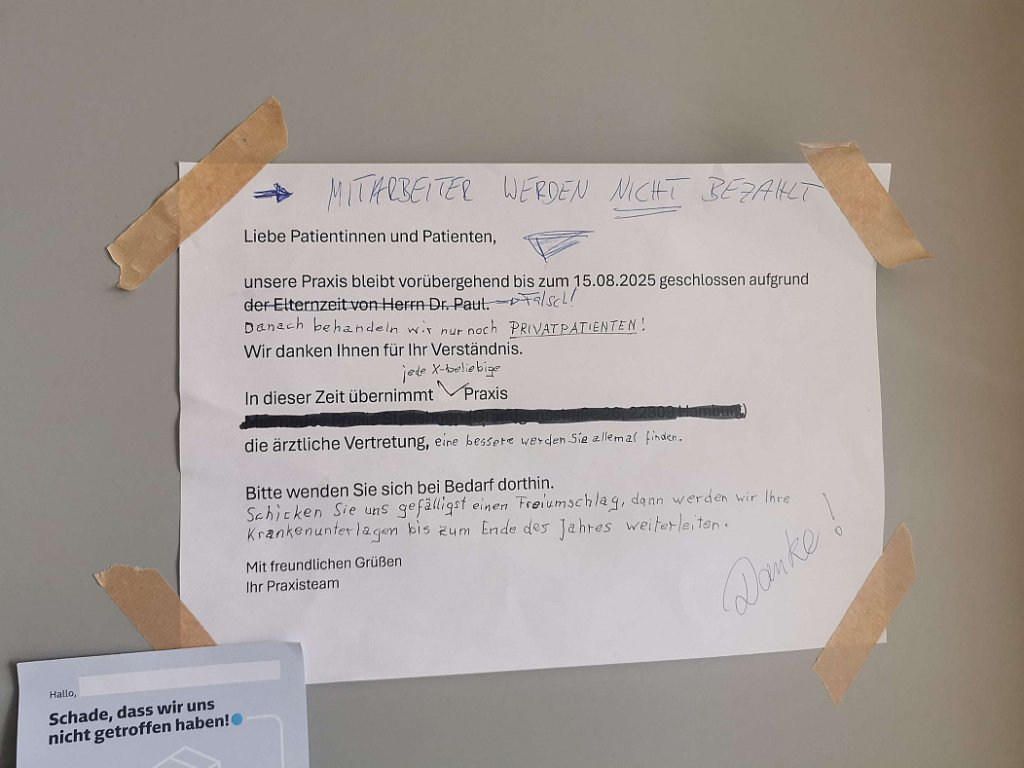 MITARBEITER WERDEN NICHT BEZAHLT
Liebe Patientinnen und Patienten,
unsere Praxis bleibt vorübergehend bis zum 15.08.2025 geschlossen aufgrund
der Elternzeit von Herrn Dr. Paul. Falsch!
Danach behandeln wir nur noch PRIVATPATIENTEN!
Wir danken Ihnen für Ihr Verständnis.
jede X-beliebige
In dieser Zeit übernimmt Praxis
22309 Hamburg
die ärztliche Vertretung, eine bessere werden Sie allemal finden.
Bitte wenden Sie sich bei Bedarf dorthin.
Schicken Sie uns gefälligst einen Freiumschlag, dann werden wir Ihre
Krankenunterlagen bis zum Ende des Jahres weiterleiten.
Danke!
Mit freundlichen Grüßen
Ihr Praxisteam
Hallo,
Schade, dass wir uns
nicht getroffen haben!